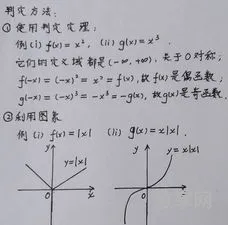 判定方法：
① 使用判定定理：
例 (i) f(x) = x², (ii) g(x) = x³.
它们的定义域都是 (-∞, +∞), 关于 0 对称;
f(-x) = (-x)² = x² = f(x), 故 f(x) 是偶函数;
g(-x) = (-x)³ = -x³ = -g(x), 故 g(x) 是奇函数.
② 利用图象
例 (i) f(x) = |x| (ii) g(x) = x|x|.
y
y
y = |x|
y = x|x|
0
x
0
x